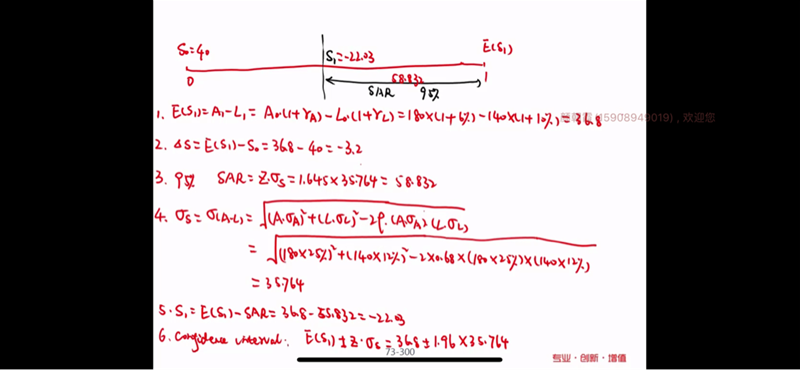 S₀=40
S₁=-22.03
E(S₁)
58.832
0
SAR 95%
1
1. E(S₁)=A₁-L₁=A₀·(1+γA)-L₀·(1+γL)=180×(1+6%)-140×(1+10%)=36.8
(15908949019),欢迎您
2. ΔS=E(S₁)-S₀=36.8-40=-3.2
3. 95% SAR=Z·σs=1.645×35.764=58.832
4. σs=σ(A-L)=√(A·σA)²+(L·σL)²-2ρ·(A·σA)(L·σL)
=√(180×25%)²+(140×12%)²-2×0.68×(180×25%)×(140×12%)
=35.764
5. S₁=E(S₁)-SAR=36.8-58.832=-22.03
6. Confidence interval: E(S₁)±Z·σs=36.8±1.96×35.764
73-300
专业·创新·增值